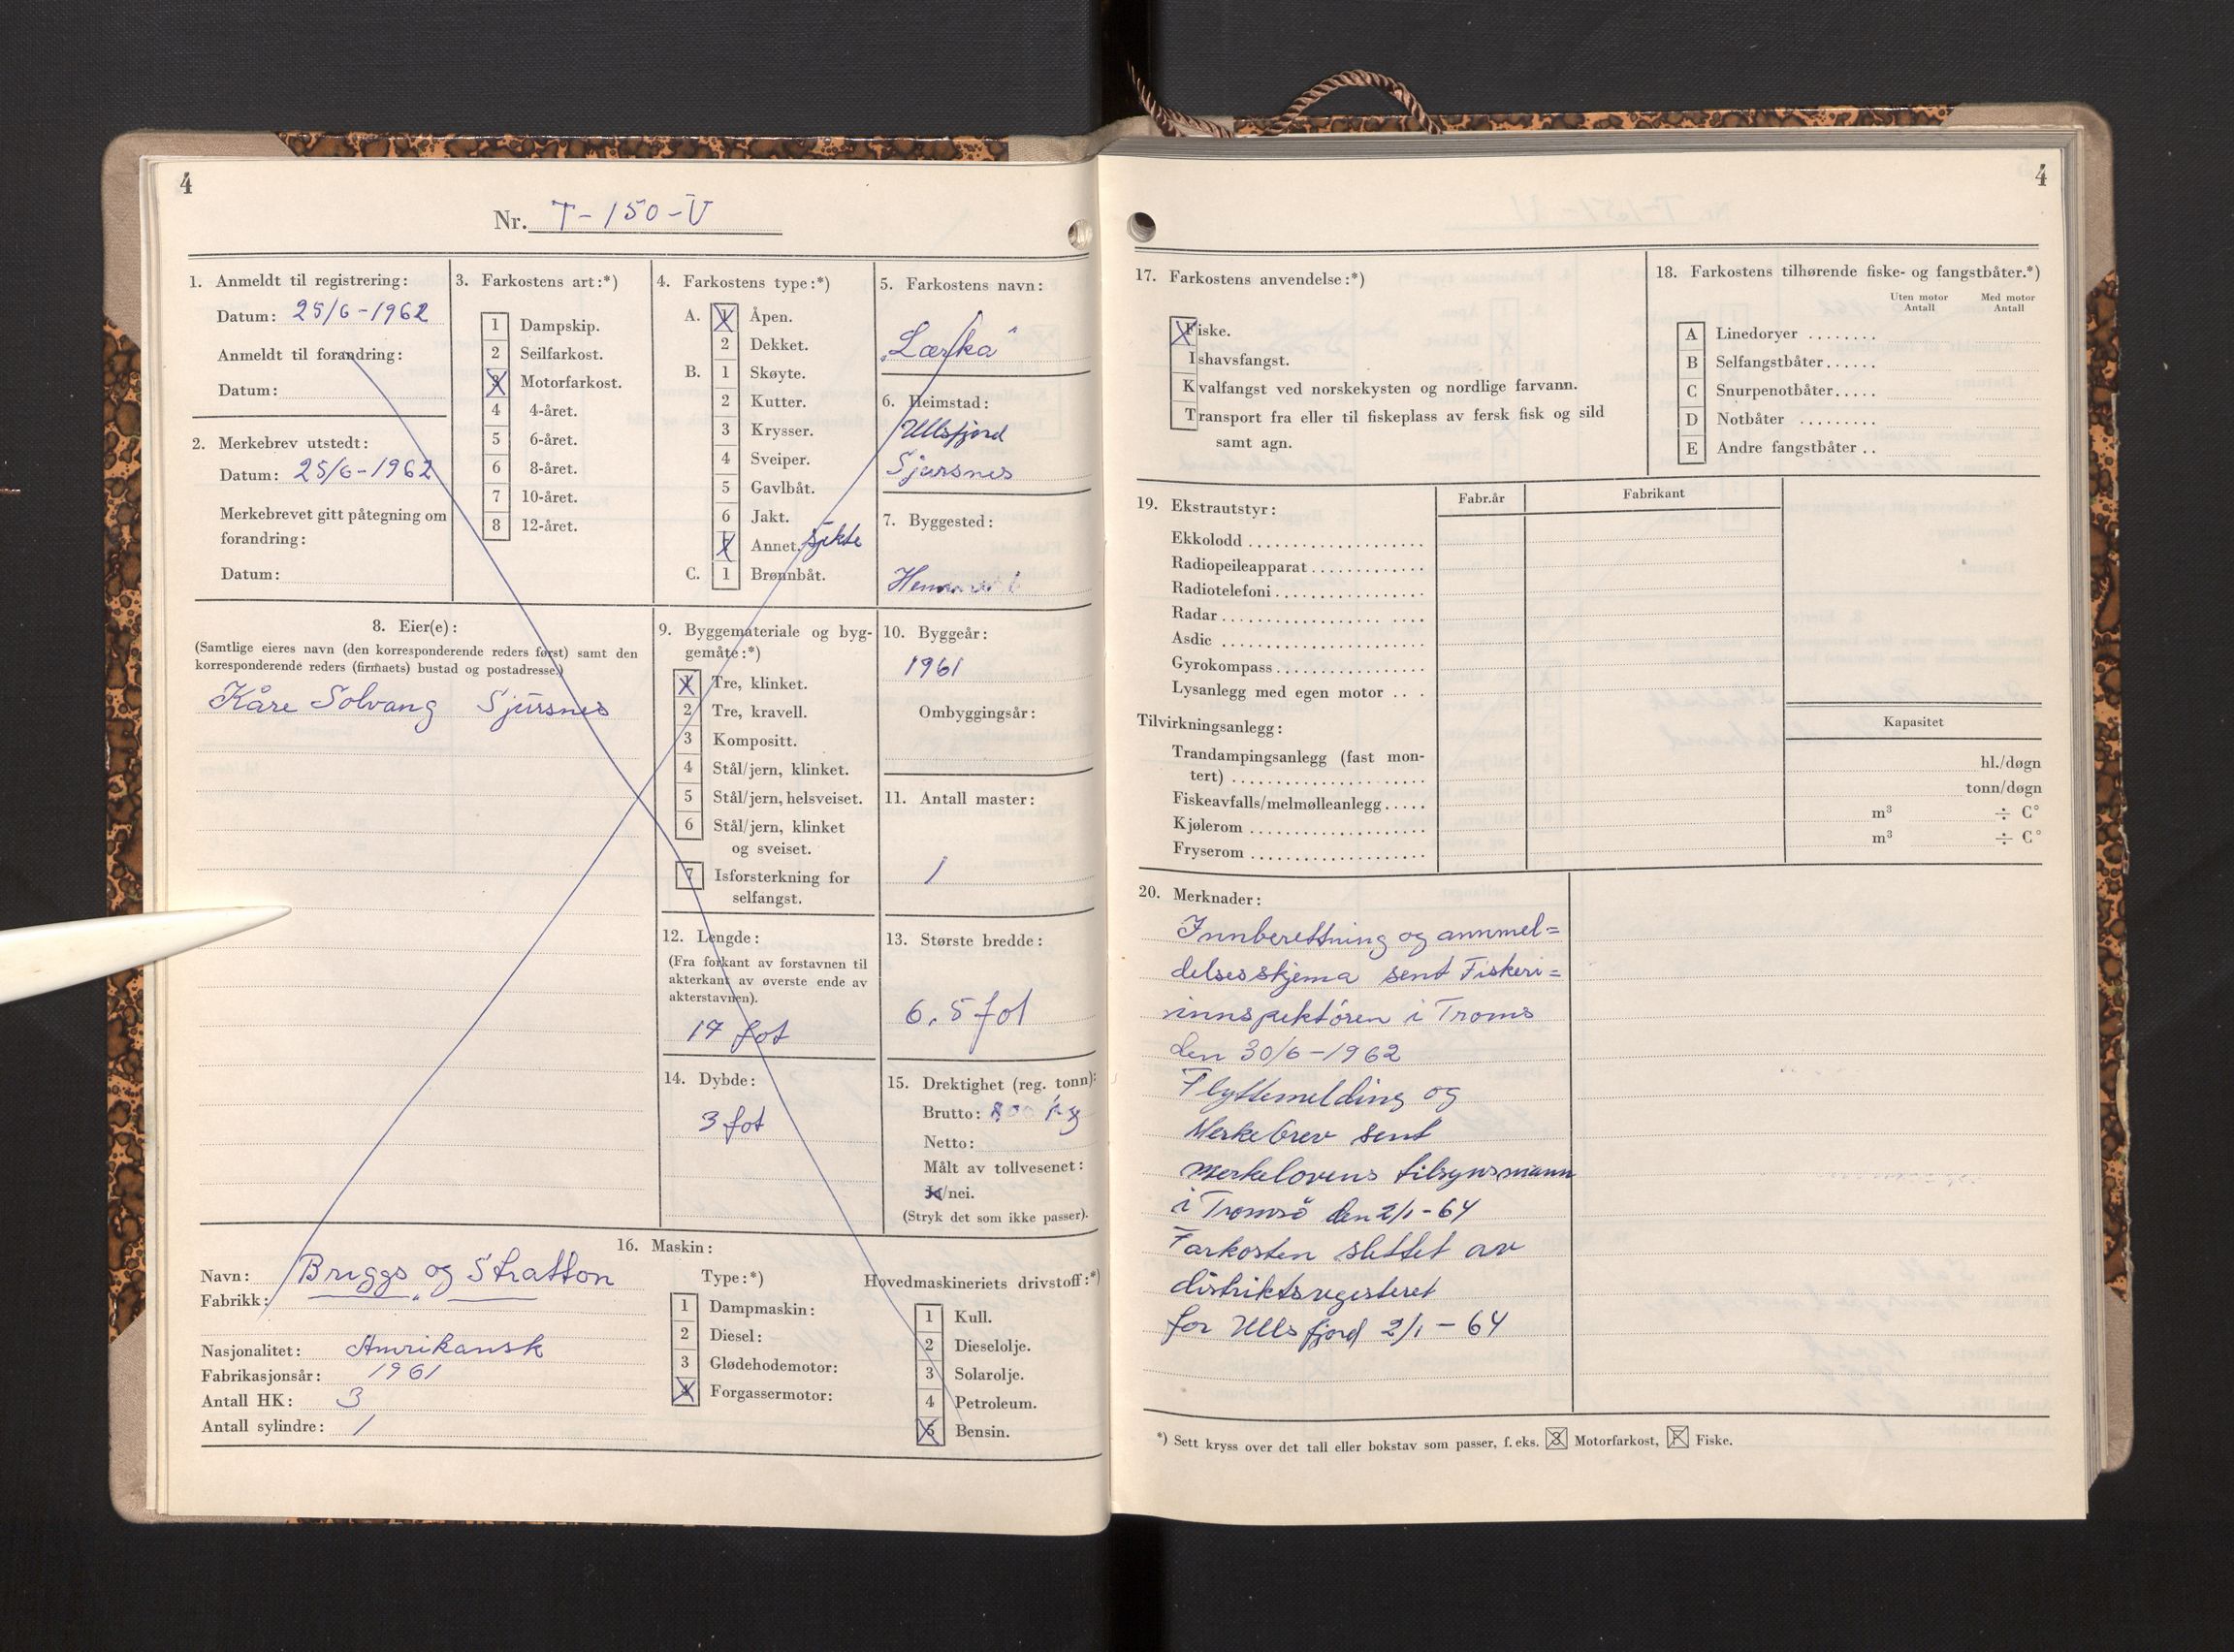 4
Nr. T-150-U
1. Anmeldt til registrering:
Datum: 25/6-1962
Anmeldt til forandring:
Datum:
2. Merkebrev utstedt:
Datum: 25/6-1962
Merkebrevet gitt påtegning om
forandring:
Datum:
3. Farkostens art:*)
1 Dampskip.
2 Seilfarkost.
3 Motorfarkost.
4 4-året.
5 6-året.
6 8-året.
7 10-året.
8 12-året.
4. Farkostens type:*)
A. 1 Åpen.
2 Dekket.
B. 1 Skøyte.
2 Kutter.
3 Krysser.
4 Sveiper.
5 Gavlbåt.
6 Jakt.
7 Annet. Sjekte
C. 1 Brønnbåt.
5. Farkostens navn:
„Lærka"
6. Heimstad:
Ullsfjord
Sjursnes
7. Byggested:
8. Eier(e):
(Samtlige eieres navn (den korresponderende reders først) samt den
korresponderende reders (firmaets) bustad og postadresse.)
Kåre Solvang Sjursnes
9. Byggemateriale og byg-
gemåte:*)
1 Tre, klinket.
2 Tre, kravell.
3 Kompositt.
4 Stål/jern, klinket.
5 Stål/jern, helsveiset.
6 Stål/jern, klinket
og sveiset.
7 Isforsterkning for
selfangst.
10. Byggeår:
1961
Ombyggingsår:
11. Antall master:
1
12. Lengde:
(Fra forkant av forstavnen til
akterkant av øverste ende av
akterstavnen).
17 fot
13. Største bredde:
6,5 fot
14. Dybde:
3 fot
15. Drektighet (reg. tonn):
Brutto: 800 kg
Netto:
Målt av tollvesenet:
Ja/nei.
(Stryk det som ikke passer).
16. Maskin:
Navn: Briggs og Stratton
Fabrikk: "
Nasjonalitet: Amrikansk
Fabrikasjonsår: 1961
Antall HK: 3
Antall sylindre: 1
Type:*)
1 Dampmaskin:
2 Diesel:
3 Glødehodemotor:
4 Forgassermotor:
Hovedmaskineriets drivstoff:*)
1 Kull.
2 Dieselolje.
3 Solarolje.
4 Petroleum.
5 Bensin.
4
17. Farkostens anvendelse:*)
Fiske.
Ishavsfangst.
Kvalfangst ved norskekysten og nordlige farvann.
Transport fra eller til fiskeplass av fersk fisk og sild
samt agn.
18. Farkostens tilhørende fiske- og fangstbåter.*)
Uten motor Med motor
Antall Antall
A Linedoryer ........
B Selfangstbåter......
C Snurpenotbåter.....
D Notbåter .........
E Andre fangstbåter ..
19. Ekstrautstyr:
Fabr.år Fabrikant
Ekkolodd
Radiopeileapparat
Radiotelefoni
Radar
Asdic
Gyrokompass
Lysanlegg med egen motor ...
Tilvirkningsanlegg:
Kapasitet
Trandampingsanlegg (fast mon-
tert) hl./døgn
Fiskeavfalls/melmølleanlegg..... tonn/døgn
Kjølerom m³ ÷ C°
Fryserom m³ ÷ C°
20. Merknader:
Innberettning og annmel=
delsesskjema sent Fiskeri=
innspektören i Troms
den 30/6-1962
Flyttemelding og
Merkebrev sent
merkelovens tilsynsmann
i Tromsö den 2/1-64
Farkosten slettet av
distriktsregisteret
for Ullsfjord 2/1-64
*) Sett kryss over det tall eller bokstav som passer, f. eks. 3 Motorfarkost, F Fiske.